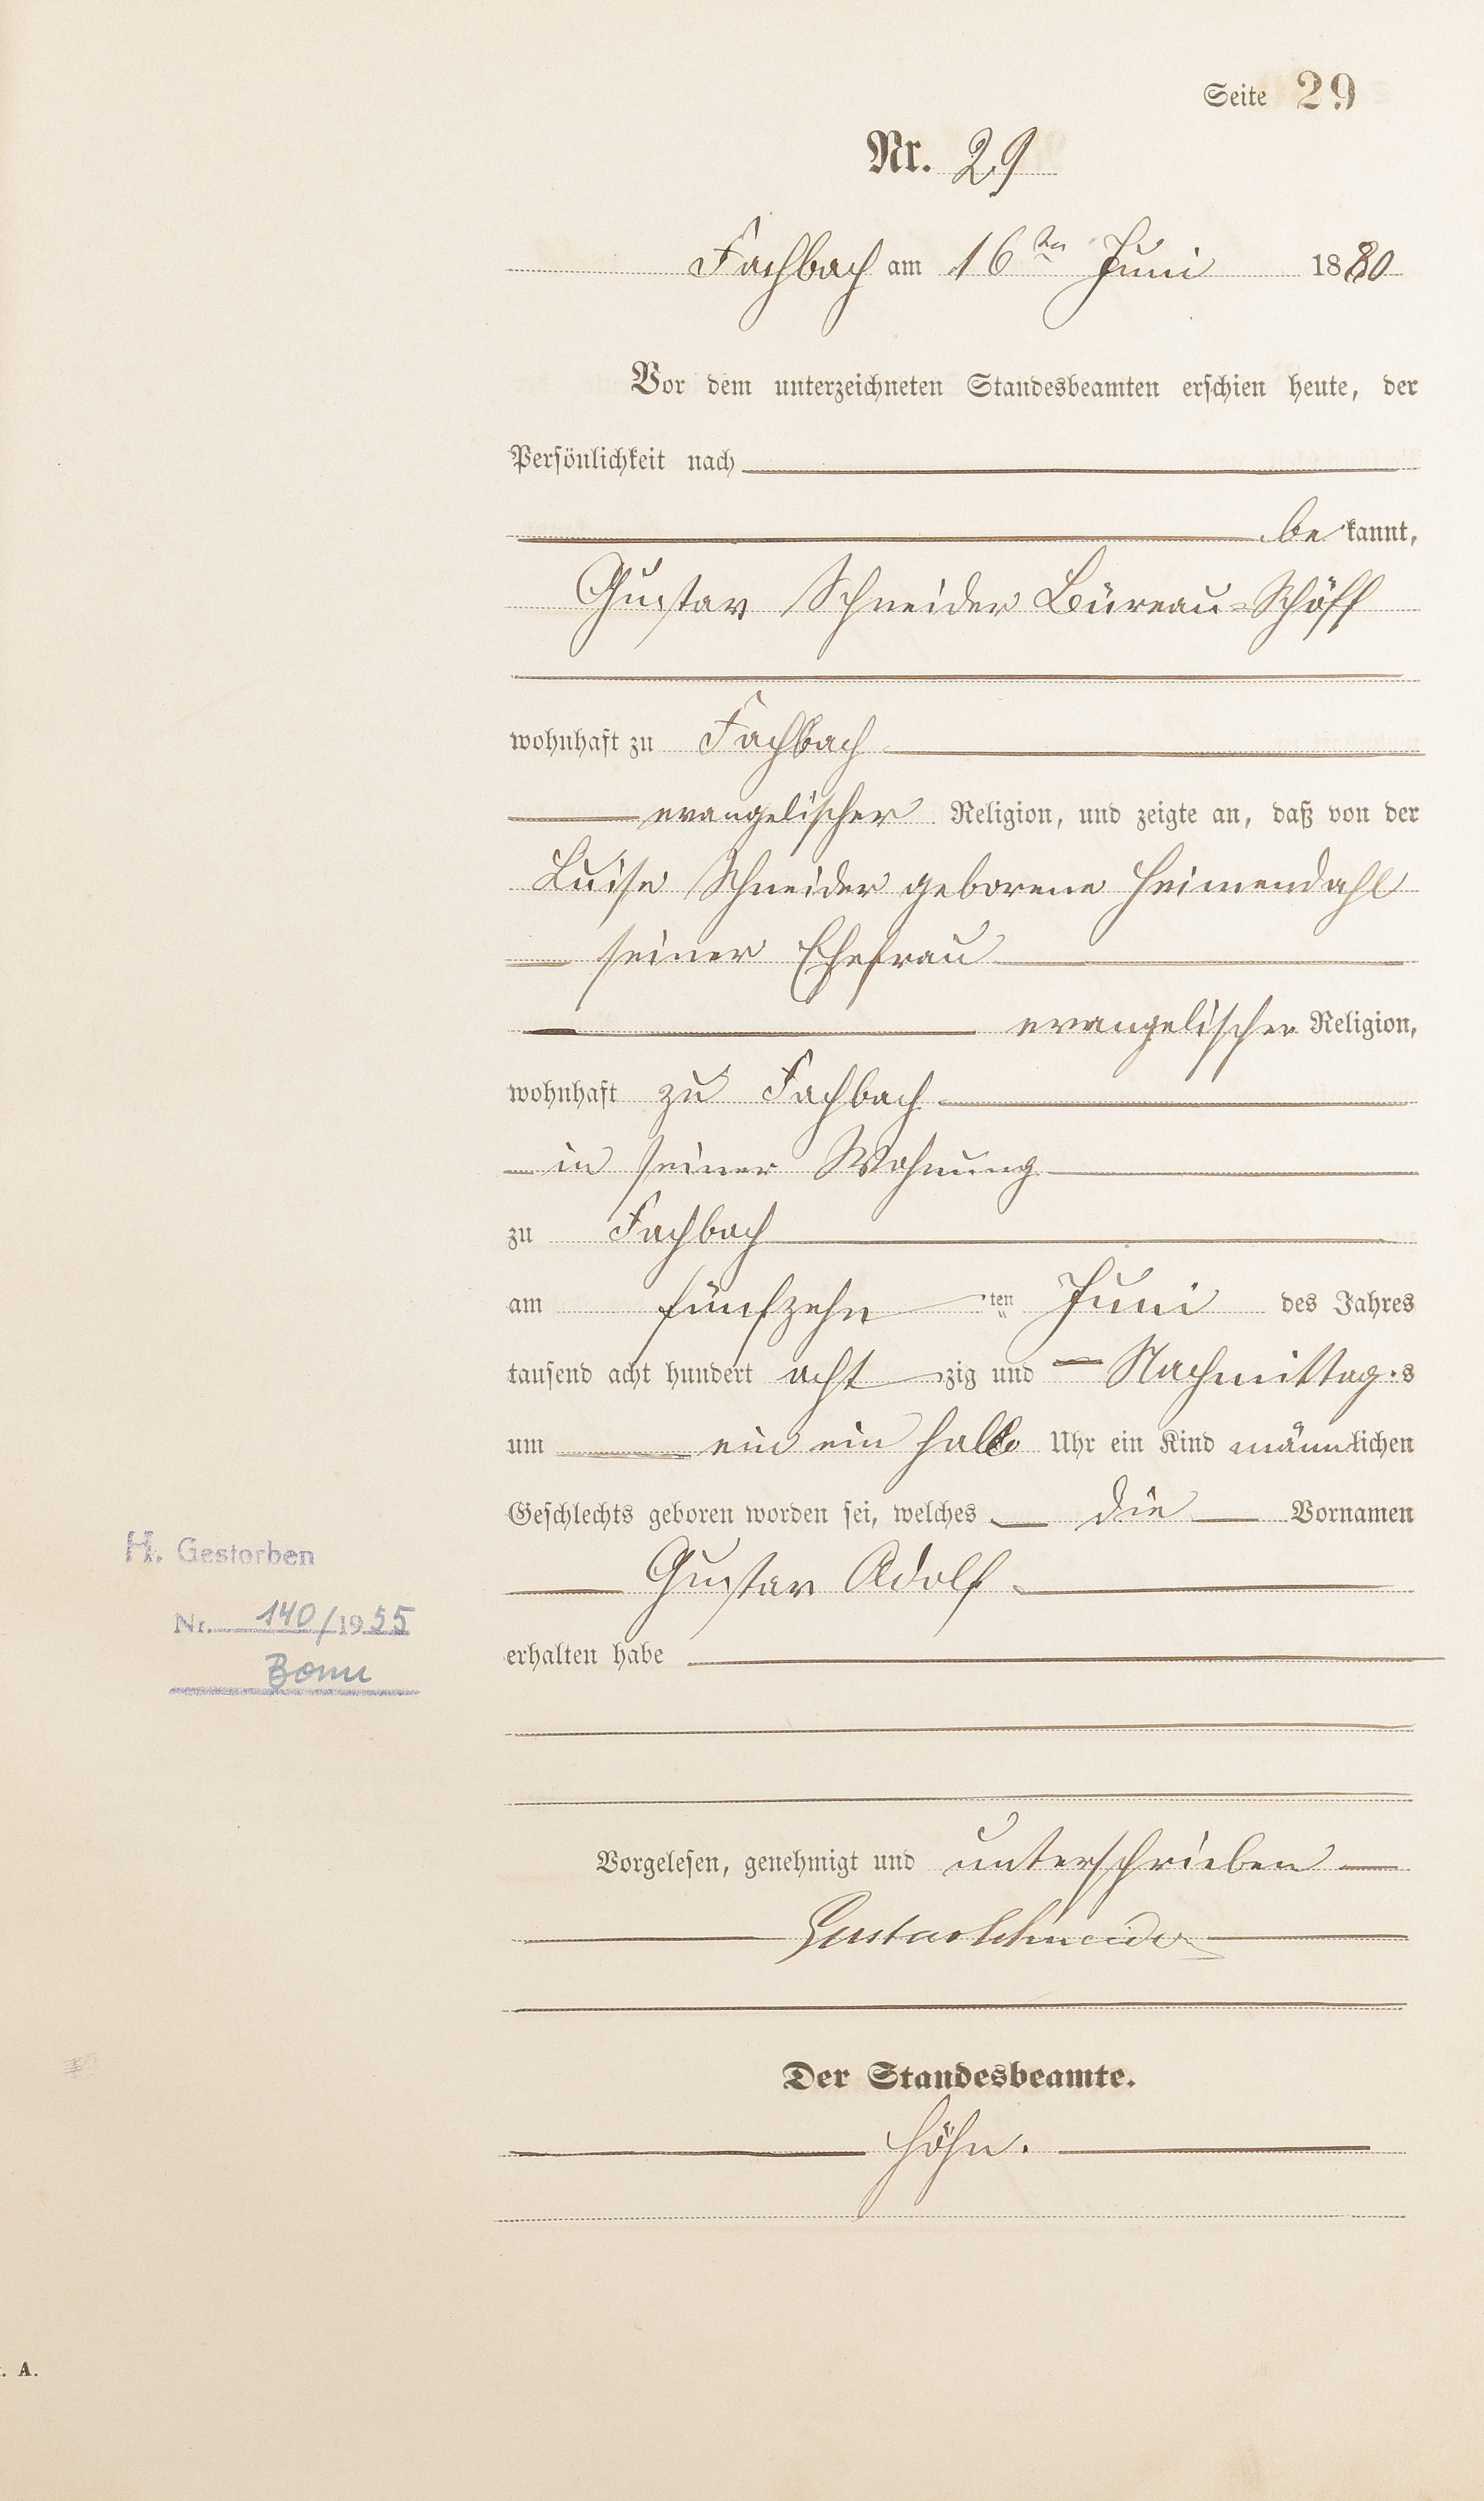 Seite 29
Nr. 29
Fachbach am 16ten Juni 1880
Vor dem unterzeichneten Standesbeamten erschien heute, der
Persönlichkeit nach
be kannt,
Gustav Schneider Büreau-Schöff
wohnhaft zu Fachbach
evangelischer Religion, und zeigte an, daß von der
Luise Schneider geborene Heimendahl
seiner Ehefrau
evangelischer Religion,
wohnhaft zu Fachbach
in seiner Wohnung
zu Fachbach
am fünfzehn ten Juni des Jahres
tausend acht hundert acht zig und Nachmittags
um ein ein halb Uhr ein Kind männlichen
Geschlechts geboren worden sei, welches die Vornamen
Gustav Adolf
H. Gestorben
Nr. 140/1955
Bonn
erhalten habe
Vorgelesen, genehmigt und unterschrieben
Gustav Schneider
Der Standesbeamte.
Höhn.
. A.